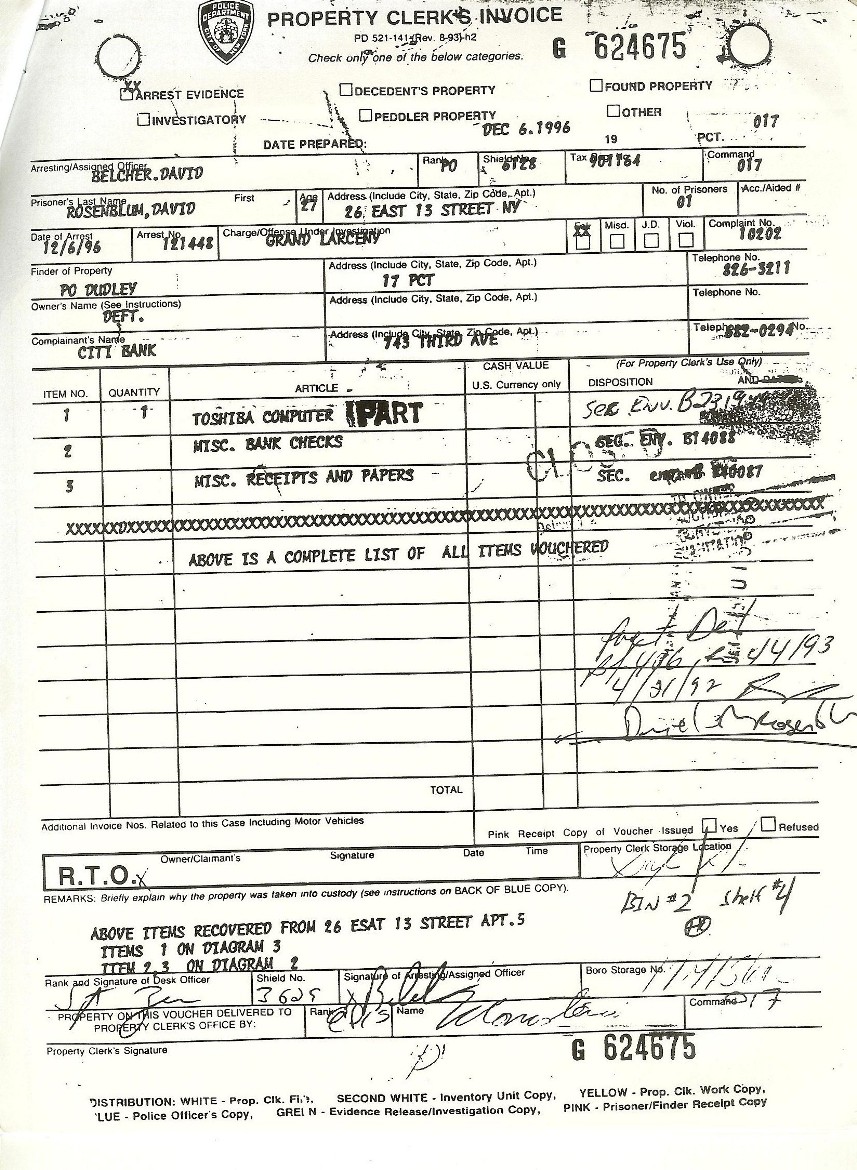 POLICE DEPARTMENT
CITY OF NEW YORK
PROPERTY CLERK'S INVOICE
PD 521-141 (Rev. 8-93)-h2
Check only one of the below categories.
G 624675
XX ARREST EVIDENCE
DECEDENT'S PROPERTY
FOUND PROPERTY
INVESTIGATORY
PEDDLER PROPERTY
OTHER
DATE PREPARED: DEC 6.1996 19 PCT. 017
Arresting/Assigned Officer Rank Shield No. Tax Command
BELCHER, DAVID PO 6128 901784 017
Prisoner's Last Name First Age Address (Include City, State, Zip Code, Apt.) No. of Prisoners Acc./Aided #
ROSENBLUM, DAVID 27 26 EAST 13 STREET NY 01
Date of Arrest Arrest No. Charge/Offense Under Investigation Misd. J.D. Viol. Complaint No.
12/6/96 121448 GRAND LARCENY XX 10202
Finder of Property Address (Include City, State, Zip Code, Apt.) Telephone No.
PO DUDLEY 17 PCT 826-3211
Owner's Name (See Instructions) Address (Include City, State, Zip Code, Apt.) Telephone No.
DEFT.
Complainant's Name Address (Include City, State, Zip Code, Apt.) Telephone No.
CITI BANK 743 THIRD AVE 882-0294
CASH VALUE (For Property Clerk's Use Only)
ITEM NO. QUANTITY ARTICLE U.S. Currency only DISPOSITION AND DATE
1 1 TOSHIBA COMPUTER PART See ENV.
2 MISC. BANK CHECKS SEC. ENV. B14088
3 MISC. RECEIPTS AND PAPERS SEC.
CLOSED
XXXXXXXXXXXXXXXXXXXXXXXXXXXXXXXXXXXXXXXXXXXXXXXXXXXXXXXXXXXXXXXXXXXXXXXXXXXX
ABOVE IS A COMPLETE LIST OF ALL ITEMS VOUCHERED
4/4/93
TOTAL
Additional Invoice Nos. Related to this Case Including Motor Vehicles
Pink Receipt Copy of Voucher Issued Yes Refused
R.T.O. X Owner/Claimant's Signature Date Time Property Clerk Storage Location
REMARKS: Briefly explain why the property was taken into custody (see instructions on BACK OF BLUE COPY).
BIN #2 Shelf #4
ABOVE ITEMS RECOVERED FROM 26 ESAT 13 STREET APT.5
ITEMS 1 ON DIAGRAM 3
ITEM 2,3 ON DIAGRAM 2
Rank and Signature of Desk Officer Shield No. Signature of Arresting/Assigned Officer Boro Storage No.
3629
PROPERTY ON THIS VOUCHER DELIVERED TO Rank Name Command 17
PROPERTY CLERK'S OFFICE BY:
Property Clerk's Signature
G 624675
DISTRIBUTION: WHITE - Prop. Clk. File, SECOND WHITE - Inventory Unit Copy, YELLOW - Prop. Clk. Work Copy,
BLUE - Police Officer's Copy, GREEN - Evidence Release/Investigation Copy, PINK - Prisoner/Finder Receipt Copy